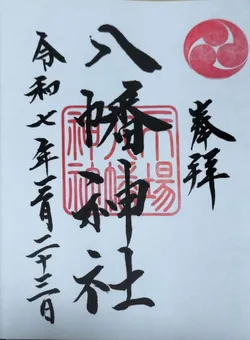 奉拝
八幡神社
令和七年二月二十三日
市場
八幡
神社